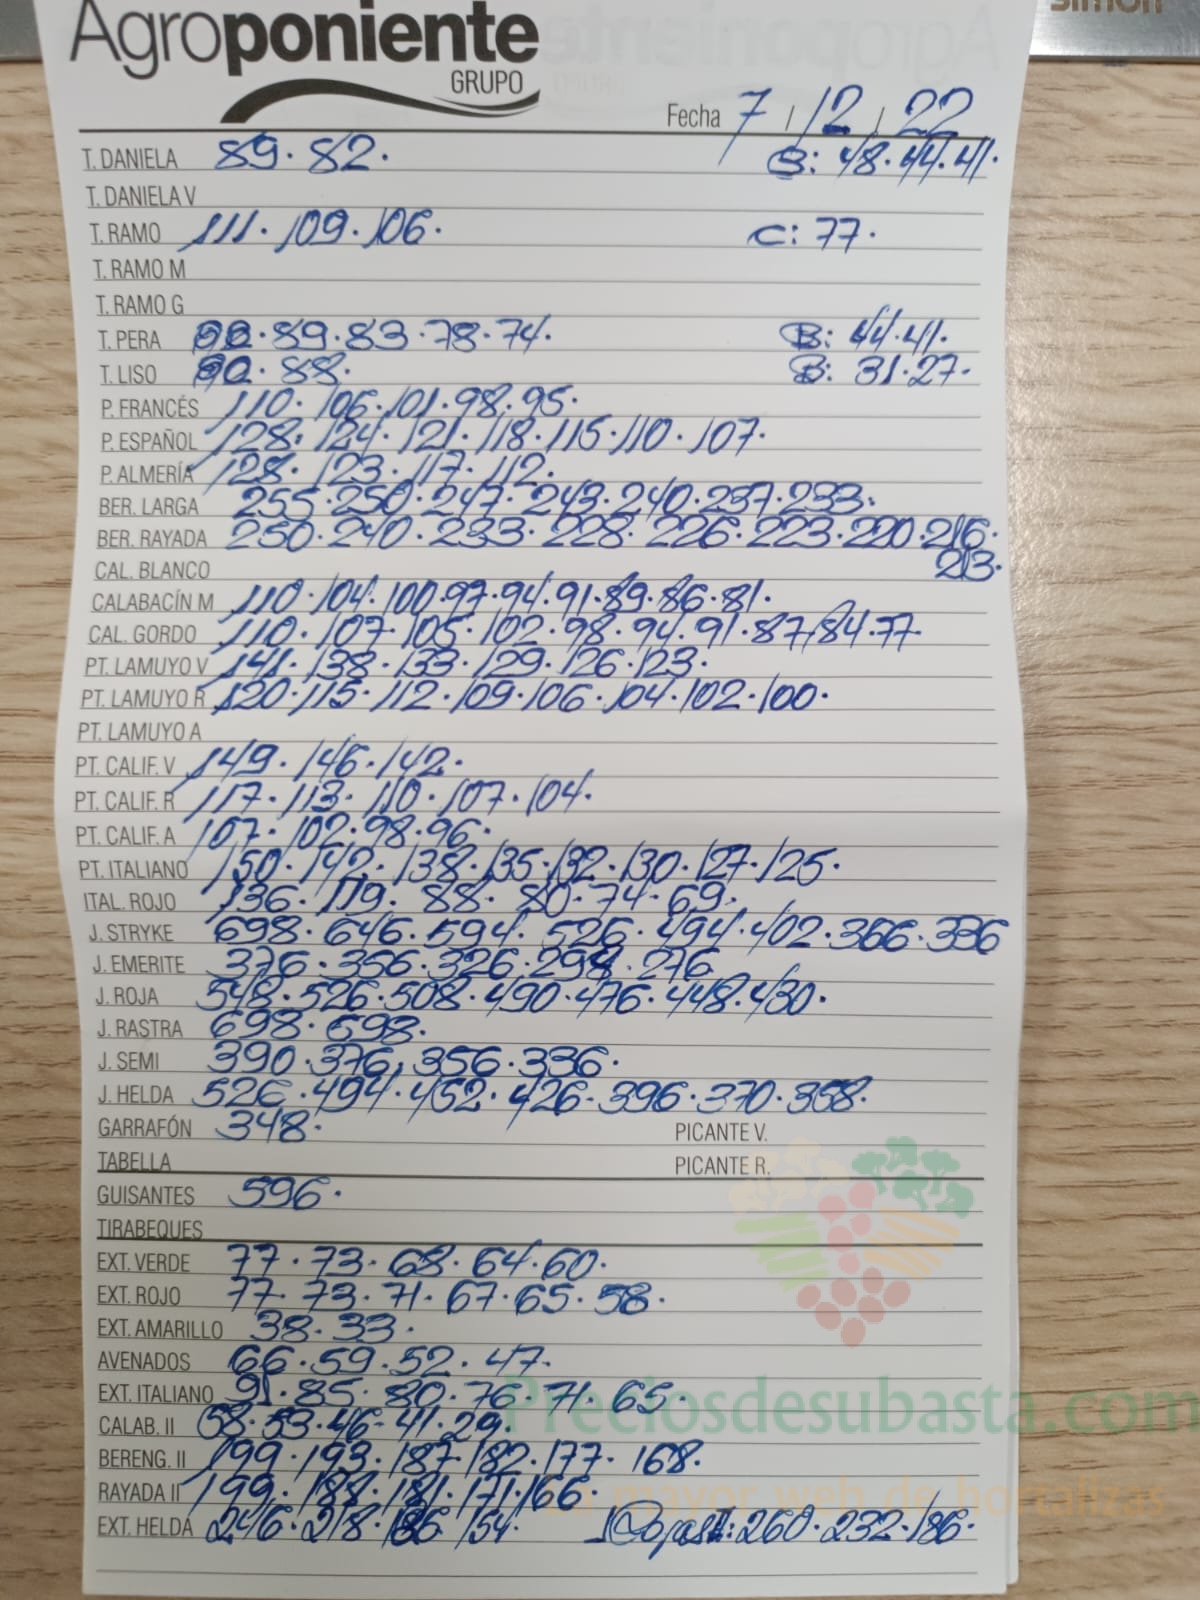 simon
Agroponiente
GRUPO
Fecha 7 / 12 / 22
T. DANIELA 89. 82. B: 48. 44. 41.
T. DANIELA V
T. RAMO 111. 109. 106. C: 77.
T. RAMO M
T. RAMO G
T. PERA 92. 89. 83. 78. 74. B: 44. 41.
T. LISO 90. 88. B: 31. 27.
P. FRANCÉS 110. 106. 101. 98. 95.
P. ESPAÑOL 128. 124. 121. 118. 115. 110. 107.
P. ALMERÍA 128. 123. 117. 112.
BER. LARGA 255. 250. 247. 243. 240. 237. 233.
BER. RAYADA 250. 240. 233. 228. 226. 223. 220. 216.
213.
CAL. BLANCO
CALABACÍN M 110. 104. 100. 97. 94. 91. 89. 86. 81.
CAL. GORDO 110. 107. 105. 102. 98. 94. 91. 87. 84. 77.
PT. LAMUYO V 141. 138. 133. 129. 126. 123.
PT. LAMUYO R 120. 115. 112. 109. 106. 104. 102. 100.
PT. LAMUYO A
PT. CALIF. V 149. 146. 142.
PT. CALIF. R 117. 113. 110. 107. 104.
PT. CALIF. A 107. 102. 98. 96.
PT. ITALIANO 150. 142. 138. 135. 132. 130. 127. 125.
ITAL. ROJO 136. 119. 88. 80. 74. 69.
J. STRYKE 698. 646. 594. 526. 494. 402. 366. 336
J. EMERITE 376. 356. 326. 298. 276
J. ROJA 548. 526. 508. 490. 476. 448. 430.
J. RASTRA 698. 698.
J. SEMI 390. 376, 356. 336.
J. HELDA 526. 494. 452. 426. 396. 370. 358.
GARRAFÓN 348. PICANTE V.
TABELLA PICANTE R.
GUISANTES 596.
TIRABEQUES
EXT. VERDE 77. 73. 68. 64. 60.
EXT. ROJO 77. 73. 71. 67. 65. 58.
EXT. AMARILLO 38. 33.
AVENADOS 66. 59. 52. 47.
EXT. ITALIANO 91. 85. 80. 76. 71. 65.
Preciosdesubasta.com
CALAB. II 58. 53. 46. 41. 29.
BERENG. II 199. 193. 187. 182. 177. 168.
RAYADA II 199. 188. 181. 171. 166.
mayor web de hortalizas
EXT. HELDA 246. 218. 186 154. 260. 232. 186.